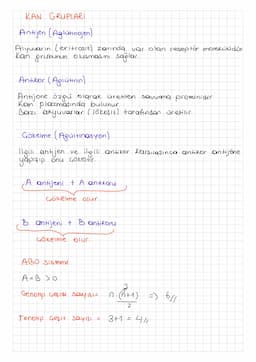 KAN GRUPLARI
Antijen (Aglütinojen)
Alyuvarın (eritrosit) zarında var olan reseptör moleküldür.
Kan grubunun oluşmasını sağlar.
Antikor (Aglütinin)
Antijene özgü olarak üretilen savunma proteinidir.
Kan plazmasında bulunur.
Bazı akyuvarlar (lökosit) tarafından üretilir.
Çökelme (Aglütinasyon)
İlgili antijen ve ilgili antikor karşılaşınca antikor antijene
yapışıp onu çökeltir.
A antijeni + A antikoru
çökelme olur.
B antijeni + B antikoru
çökelme olur.
ABO Sistemi
A=B > 0
Genotip çeşit sayısı = n.(n+1) / 2 => 6//
Fenotip çeşit sayısı = 3+1 = 4//